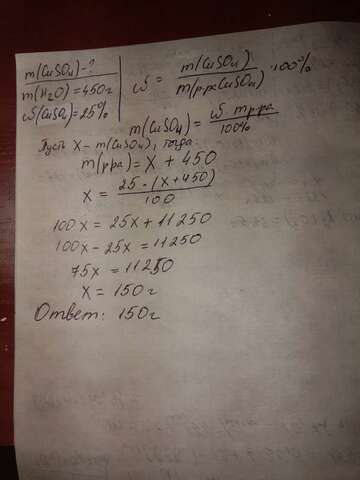 m(CuSO₄)-?
m(H₂O)=450г
ω(CuSO₄)=25%
ω = m(CuSO₄) / m(р-ра CuSO₄) · 100%
m(CuSO₄) = ω · m р-ра / 100%
Пусть x - m(CuSO₄), тогда:
m(р-ра) = x + 450
x = 25 · (x + 450) / 100
100x = 25x + 11250
100x - 25x = 11250
75x = 11250
x = 150г
Ответ: 150г